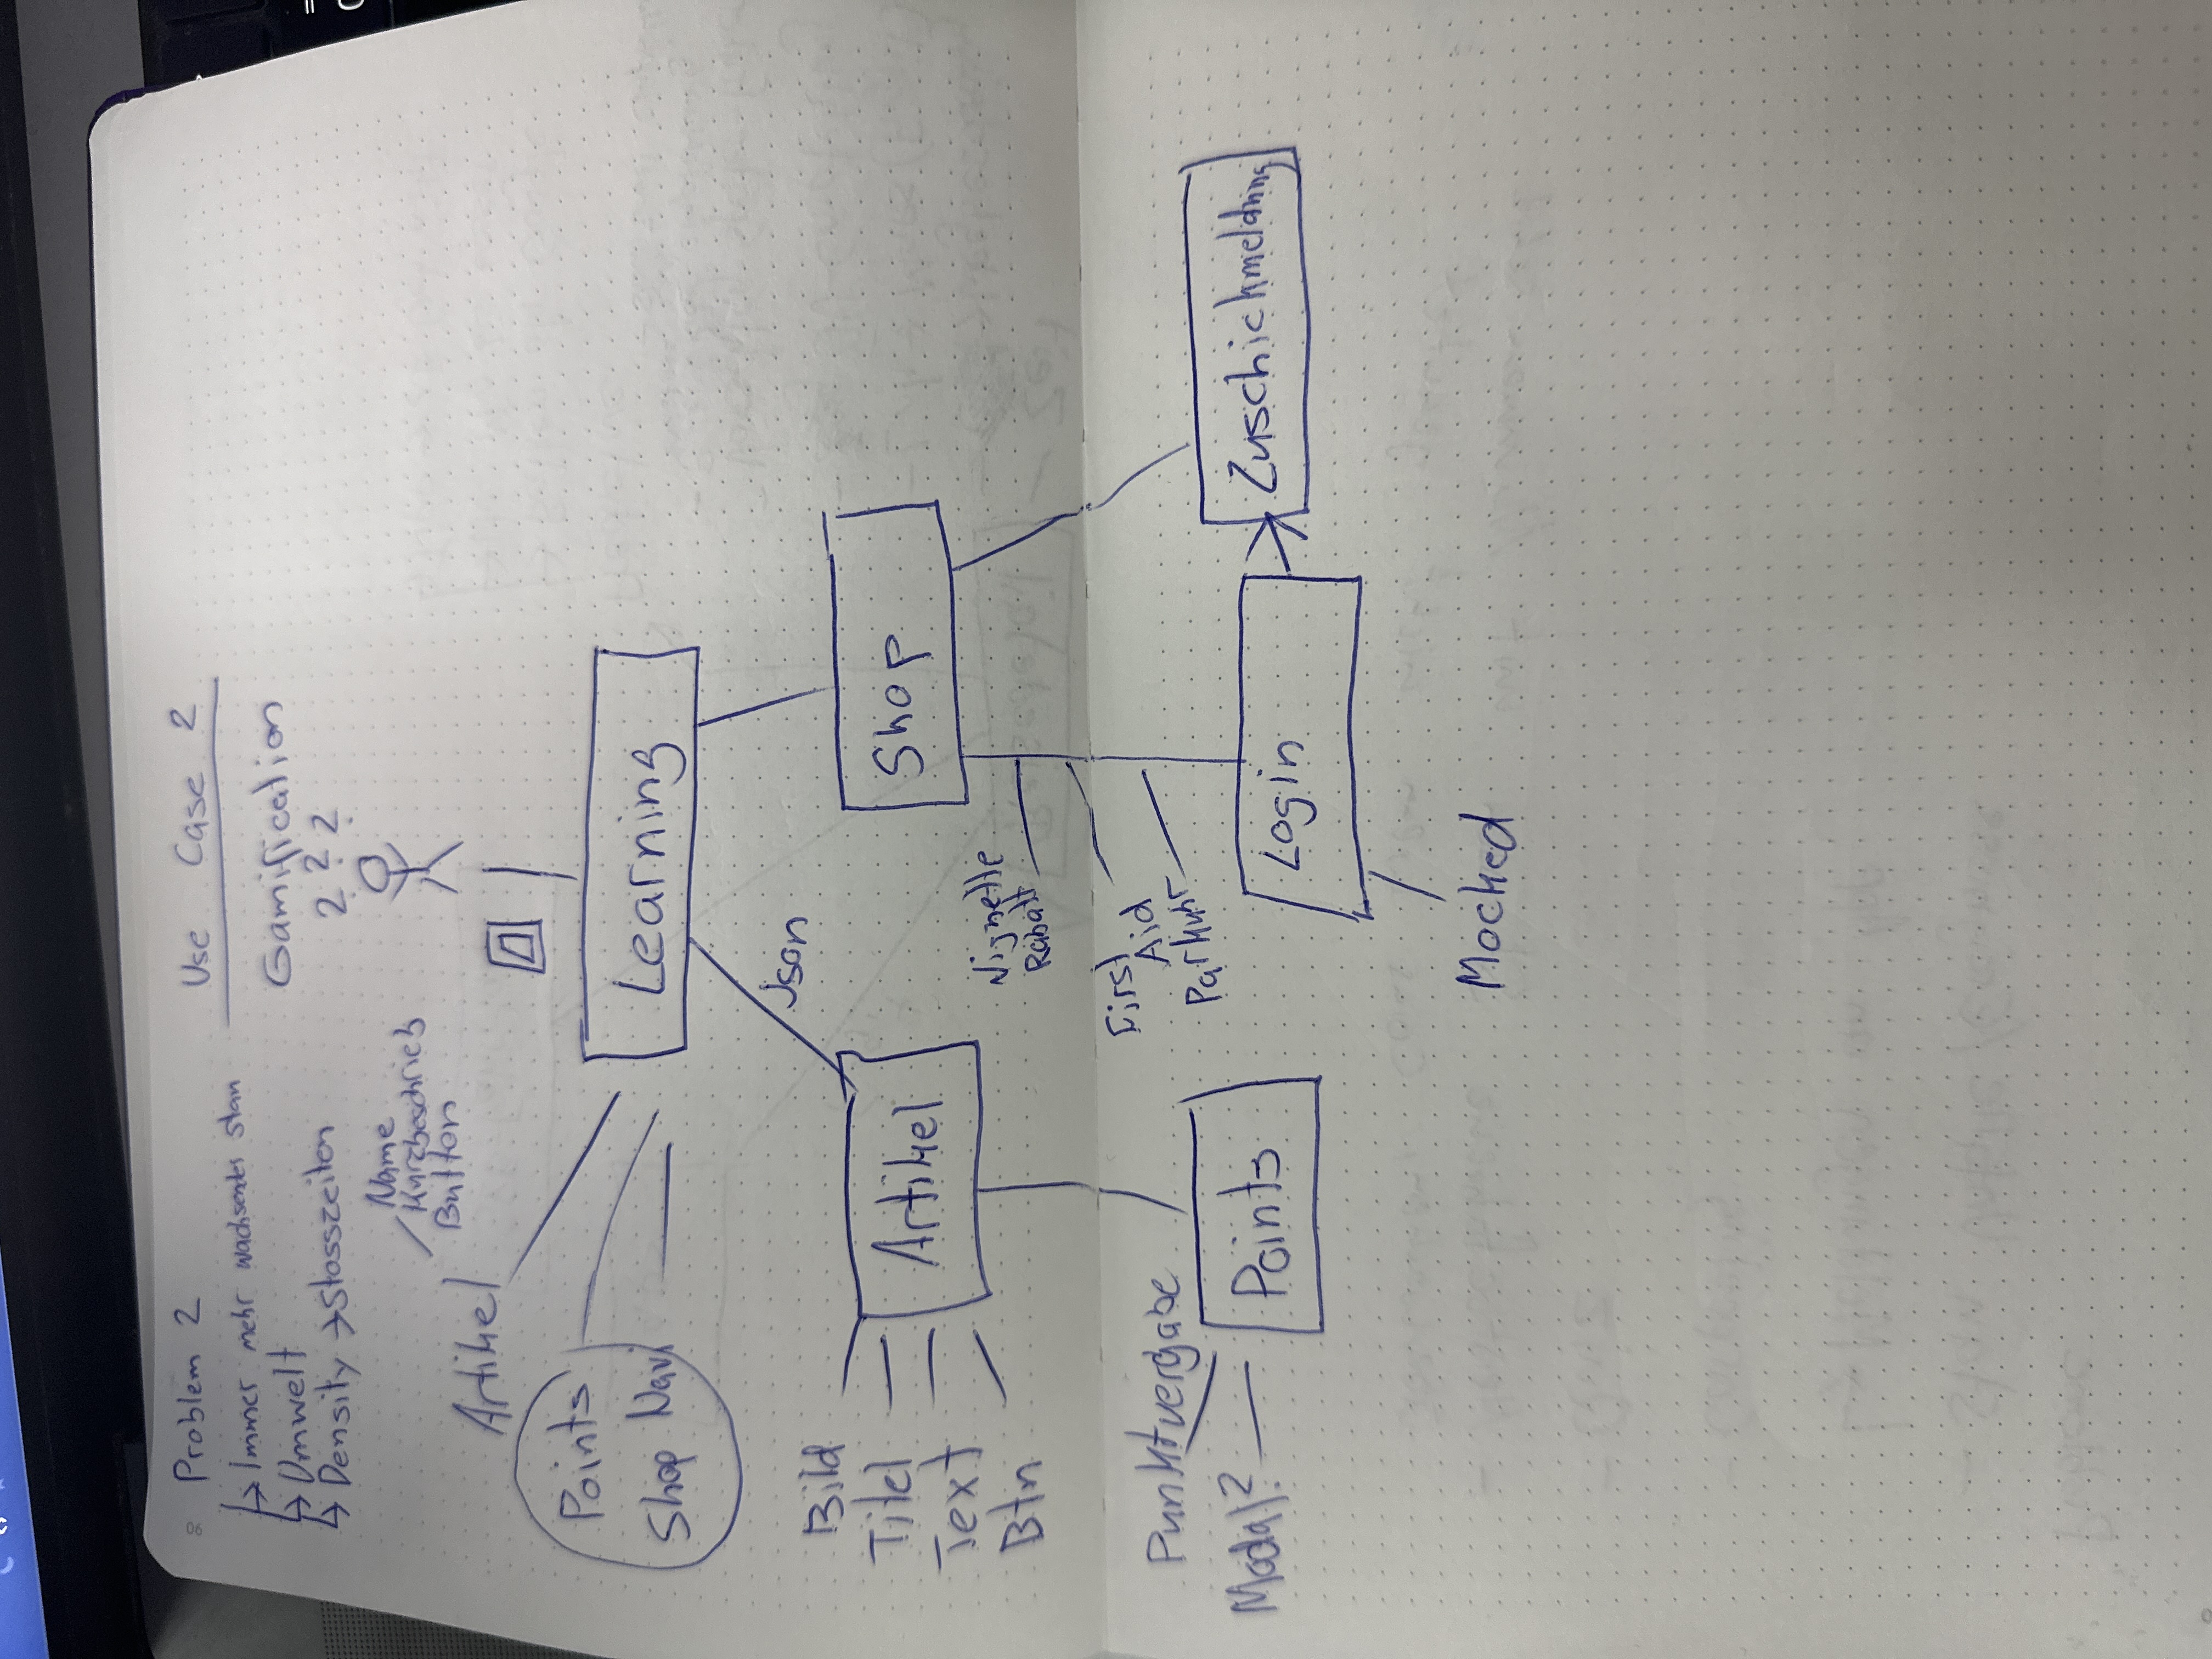 06
Problem 2
↳ Immer mehr wachsender stau
↳ Umwelt
↳ Density → Stosszeiten
Use Case 2
Gamification
? ? ? ?
Artikel
Name
Kurzbeschrieb
Button
Points
Shop Navi
Learning
Json
Shop
Bild
Titel
Text
Btn
Artikel
Vignette
Rabatt
First
Aid
Parkuhr
Punktvergabe
Modal?
Points
Login
Zuschickmeldung
Mocked